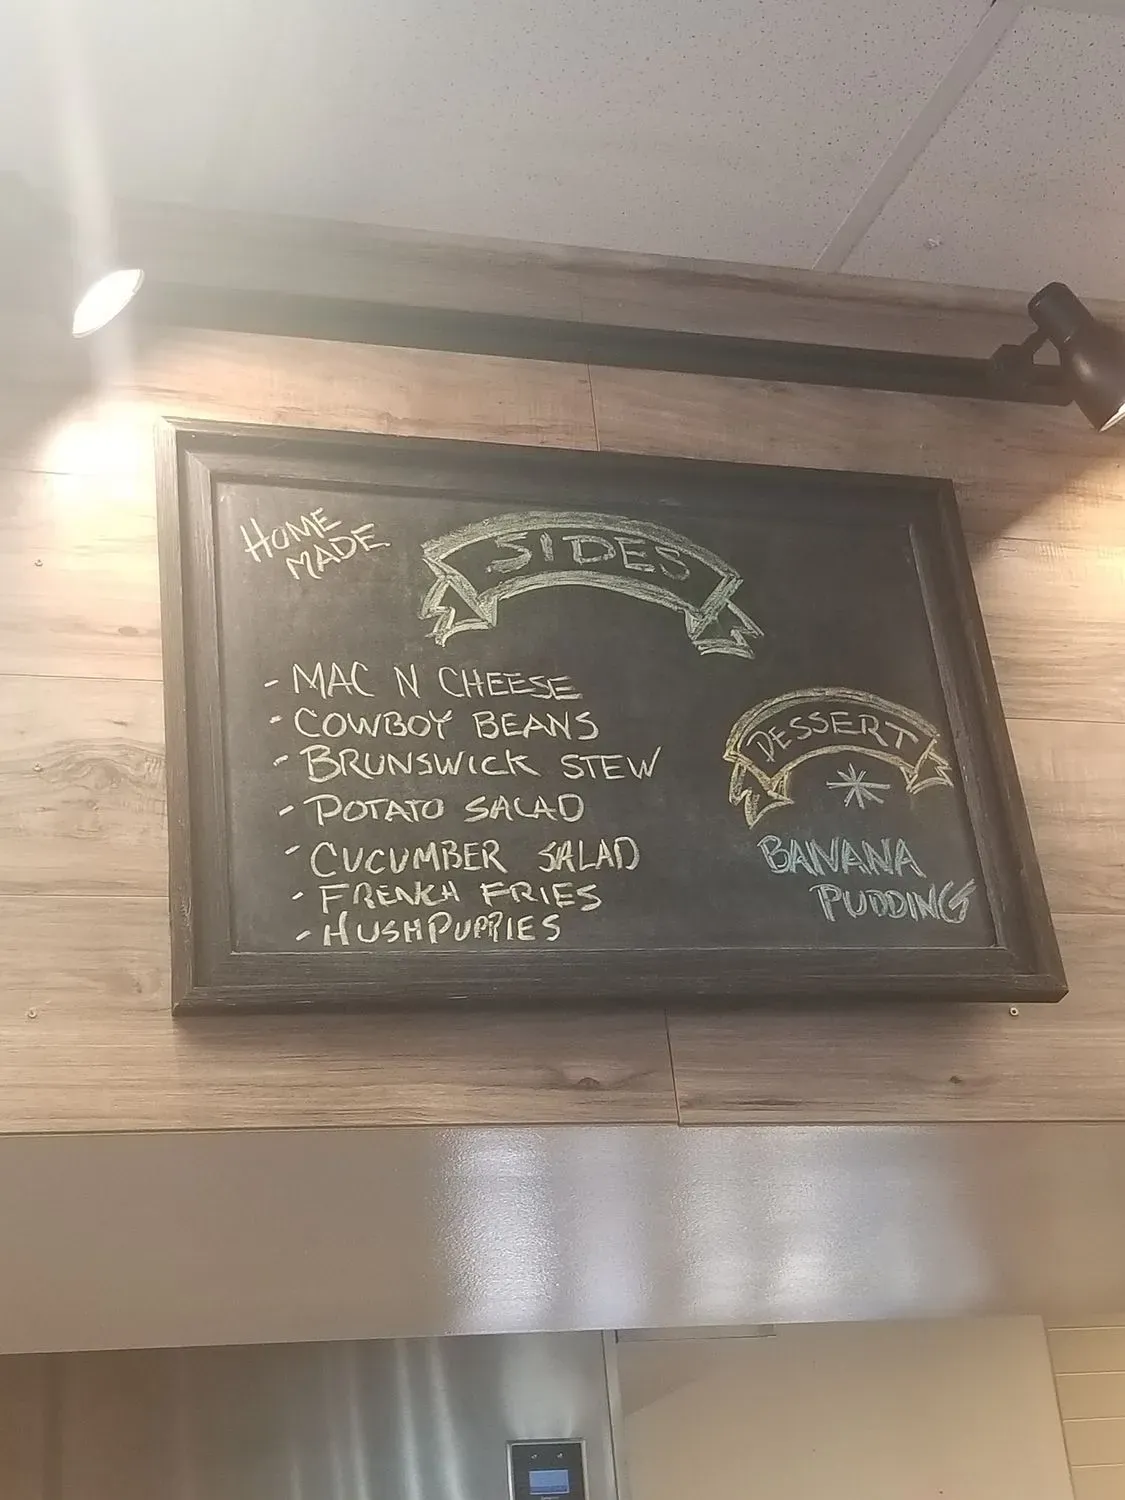 HOME
MADE
SIDES
- MAC N CHEESE
- COWBOY BEANS
- BRUNSWICK STEW
- POTATO SALAD
- CUCUMBER SALAD
- FRENCH FRIES
- HUSHPUPPIES
DESSERT
*
BANANA
PUDDING